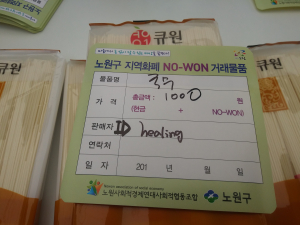 큐원
노원구 지역화폐 NO-WON 거래물품
물품명 국수
가 격 총금액 : 1000 원
(현금 + NO-WON)
판매자 ID healing
연락처
일 자 201 년 월 일
노원사회적경제연대사회적협동조합 노원구